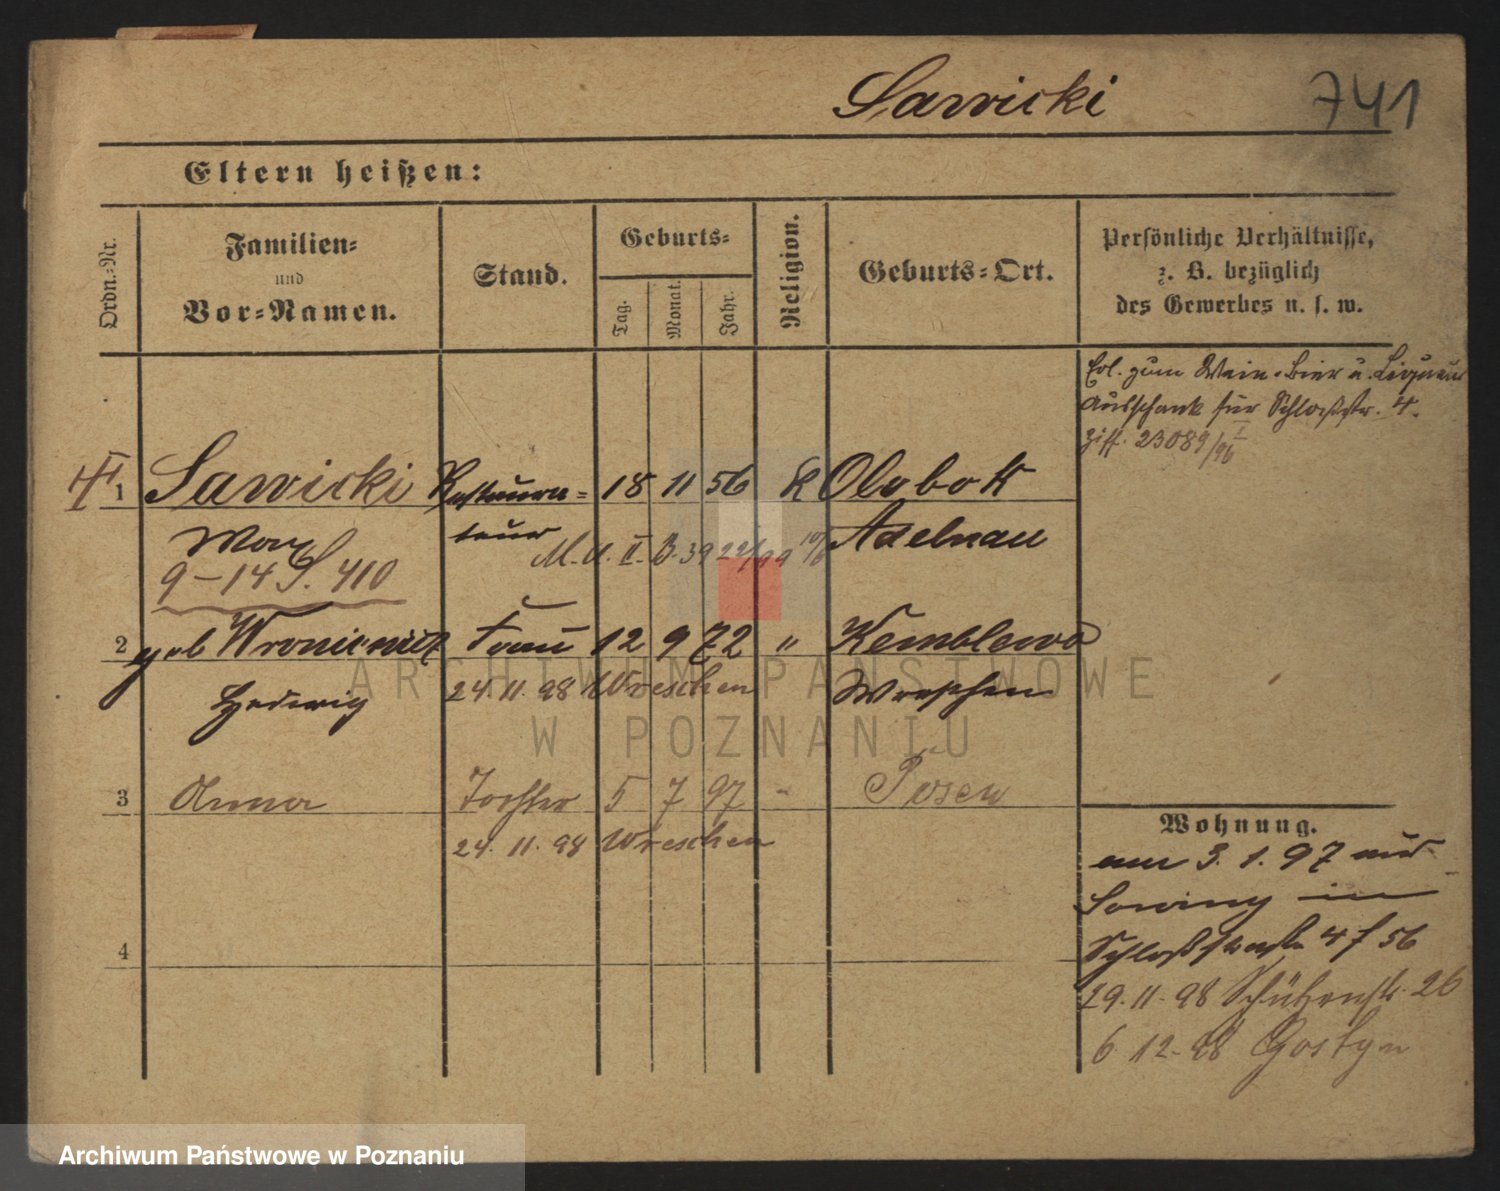 Sawicki 741
Eltern heißen:
Ordn.=Nr.
Familien=
und
Vor=Namen.
Stand.
Geburts=
Tag.
Monat.
Jahr.
Religion.
Geburts=Ort.
Persönliche Verhältnisse,
z. B. bezüglich
des Gewerbes u. s. w.
Erl. zum Wein- Bier u. Liqueur
Ausschank für Schloßstr. 4.
23089/96
1 Sawicki Restaura= 18 11 56 K Olobok
Max teur Adelnau
9-14 S. 410 M. U. II. B. 3922/99
2 geb Wroniewicz Frau 12 9 72 " Kemblowo
Hedwig 24. 11. 98 Wreschen Wreschen
3 Anna Tochter 5 7 97 " Posen
24. 11. 98 Wreschen
4
Wohnung.
am 3. 1. 97 aus
in
Schloßstraße 4 f 56
29. 11. 98 Schützenstr. 26
6. 12. 98 Gostyn
ARCHIWUM PAŃSTWOWE
W POZNANIU
Archiwum Państwowe w Poznaniu